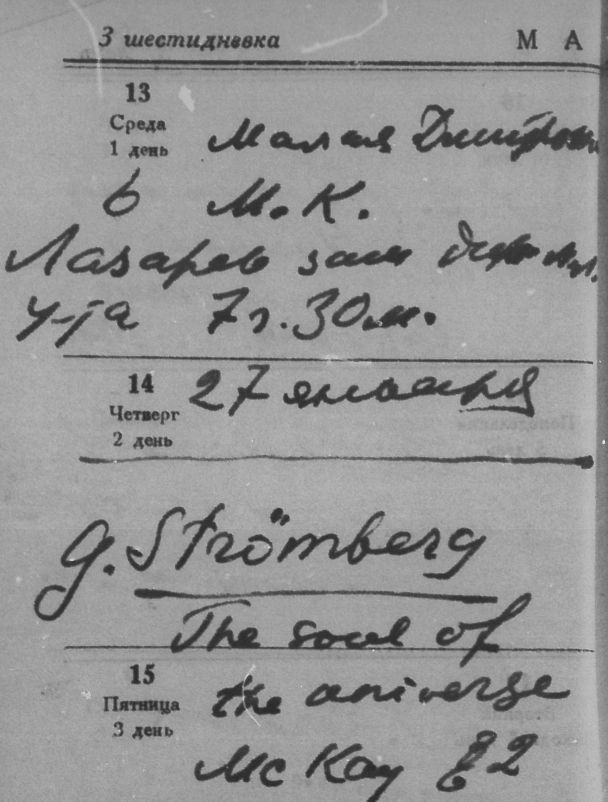 3 шестидневка М А
13
Среда
1 день
Малая Дмитров
6 М. К.
Лазарев зам
у-та 7 г. 30 м.
14
Четверг
2 день
27 января
G. Strömberg
The soul of
15
Пятница
3 день
the universe
McKay 2